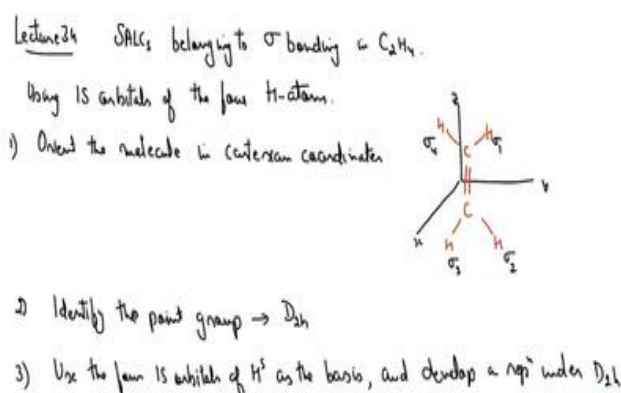 Lecture 34 SALCs belonging to σ bonding in C₂H₄.
Using 1S orbitals of the four H-atom.
1) Orient the molecule in cartesian coordinates
z
H H
σ₄ C σ₁
y
C
x H H
σ₃ σ₂
2) Identify the point group → D₂h
3) Use the four 1S orbitals of Hˢ as the basis, and develop a repⁿ under D₂h